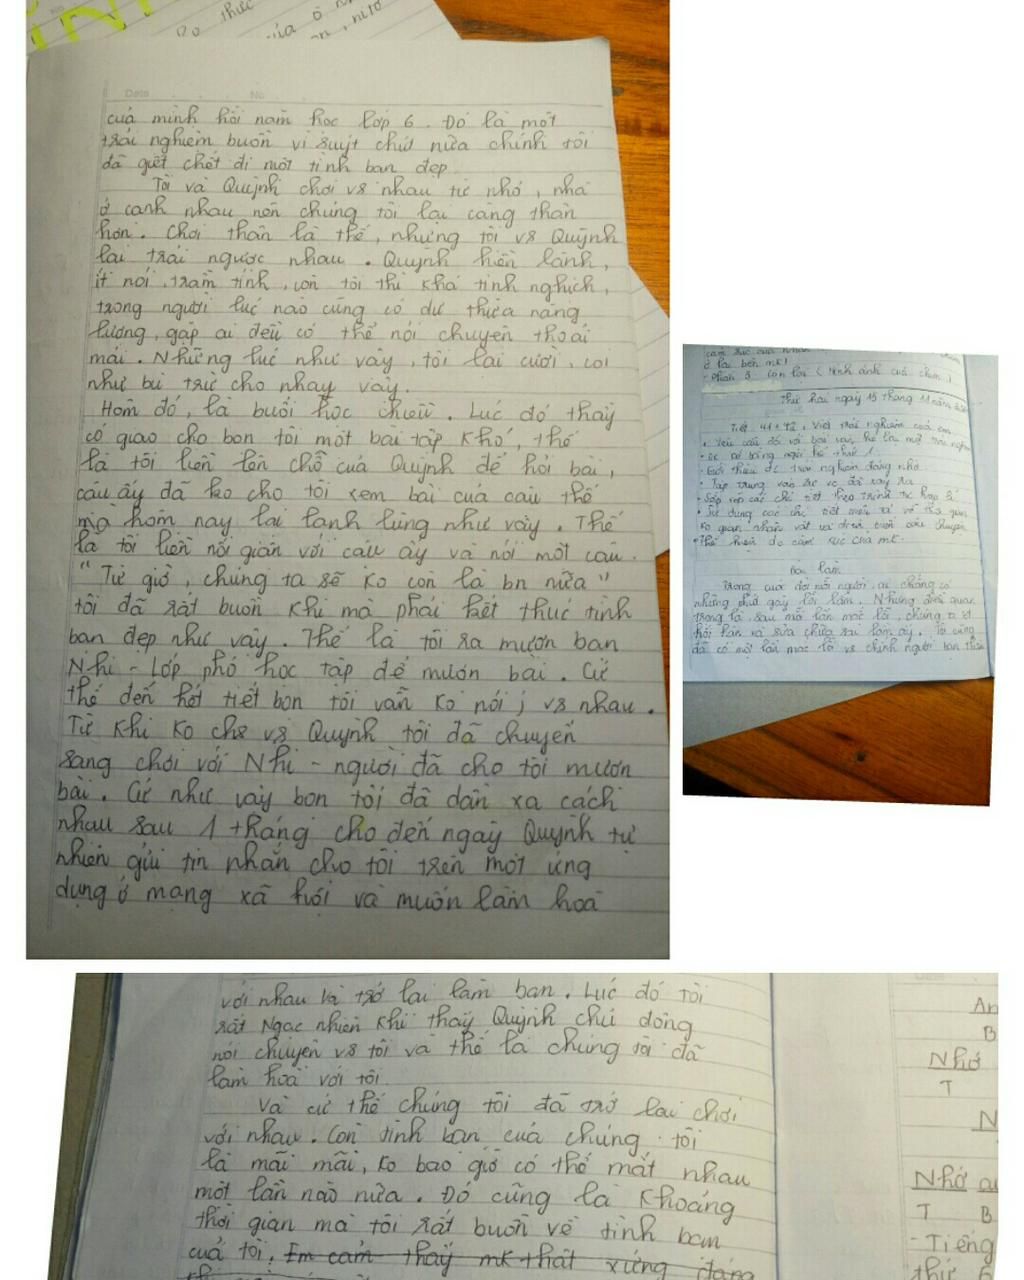 của mình hồi năm học lớp 6. Đó là một
trải nghiệm buồn vì suýt chút nữa chính tôi
đã giết chết đi một tình bạn đẹp
Tôi và Quỳnh chơi vs nhau từ nhỏ, nhà
ở cạnh nhau nên chúng tôi lại càng thân
hơn. Chơi thân là thế, nhưng tôi vs Quỳnh
lại trái ngược nhau. Quỳnh hiền lành,
ít nói, trầm tính, còn tôi thì khá tinh nghịch,
trong người lúc nào cũng có dư thừa năng
lượng, gặp ai đều có thể nói chuyện thoải
mái. Những lúc như vậy, tôi lại cười, coi
như bù trừ cho nhay vậy.
Hôm đó, là buổi học chiều. Lúc đó thầy
cô giao cho bọn tôi một bài tập khó, thế
là tôi liền lên chỗ của Quỳnh để hỏi bài,
cậu ấy đã ko cho tôi xem bài của cậu thế
mà hôm nay lại lạnh lùng như vậy. Thế
là tôi liền nổi giận với cậu ấy và nói một câu.
"Từ giờ, chúng ta sẽ ko còn là bn nữa"
tôi đã rất buồn khi mà phải kết thúc tình
bạn đẹp như vậy. Thế là tôi ra mượn bạn
Nhi - Lớp phó học tập để mượn bài. Cứ
thế đến hết tiết bọn tôi vẫn ko nói j vs nhau.
Từ khi ko chs vs Quỳnh tôi đã chuyển
sang chơi với Nhi - người đã cho tôi mượn
bài. Cứ như vậy bọn tôi đã dần xa cách
nhau sau 1 tháng cho đến ngày Quỳnh tự
nhiên gửi tin nhắn cho tôi trên một ứng
dụng ở mạng xã hội và muốn làm hoà
ở lại bên mk!
- Phần 3: Còn lại (Hình ảnh của chim)
Thứ hai ngày 15 tháng 11 năm
Tiết 41+42: Viết trải nghiệm của em
• Yêu cầu đối với bài văn kể lại một trải nghiệm
• Đc kể bằng người kể thứ 1
• Giới thiệu đc trải nghiệm đáng nhớ
• Tập trung vào sự vc đã xảy ra
• Sắp xếp các chi tiết theo trình tự hợp lí
• Sử dụng các chi tiết miêu tả về thời gian
ko gian nhân vật và diễn biến câu chuyện
• Thể hiện đc cảm xúc của mk.
Bài làm
Trong cuộc đời mỗi người, ai chẳng có
những phút giây lỗi lầm. Nhưng điều quan
trọng là, sau mỗi lần mắc lỗi, chúng ta
hối hận và sửa chữa sai lầm ấy. Tôi cũng
đã có một lần mắc lỗi vs chính người bạn thân
với nhau và trở lại làm bạn. Lúc đó tôi
rất Ngạc nhiên khi thấy Quỳnh chủ động
nói chuyện vs tôi và thế là chúng tôi đã
làm hoà với tôi
Và cứ thế chúng tôi đã trở lại chơi
với nhau. Còn tình bạn của chúng tôi
là mãi mãi, ko bao giờ có thể mất nhau
một lần nào nữa. Đó cũng là khoảng
thời gian mà tôi rất buồn về tình bạn
của tôi. Em cảm thấy mk thật xứng đáng
An
B
Nhớ
T
N
Nhớ
T B
- Tiếng
thứ 6